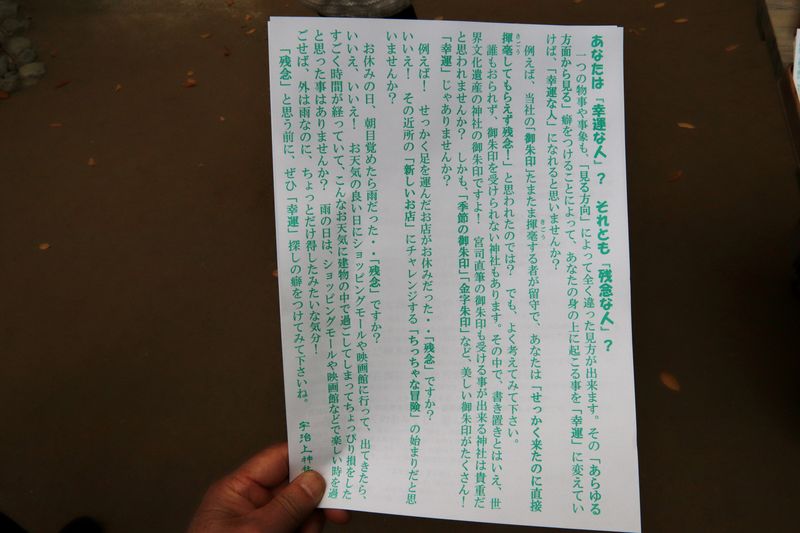 あなたは「幸運な人」？　それとも「残念な人」？
一つの物事や事象も、「見る方向」によって全く違った見方が出来ます。その「あらゆる
方面から見る」癖をつけることによって、あなたの身の上に起こる事を「幸運」に変えてい
けば、「幸運な人」になれると思いませんか？
例えば、当社の「御朱印」たまたま揮毫する者が留守で、あなたは「せっかく来たのに直接
きごう
揮毫してもらえず残念！」と思われたのでは？　でも、よく考えてみて下さい。
きごう
誰もおられず、御朱印を受けられない神社もあります。その中で、書き置きとはいえ、世
界文化遺産の神社の御朱印ですよ！　宮司直筆の御朱印も受ける事が出来る神社は貴重だ
と思われませんか？　しかも、「季節の御朱印」「金字朱印」など、美しい御朱印がたくさん！
「幸運」じゃありませんか？
例えば！　せっかく足を運んだお店がお休みだった・・「残念」ですか？
いいえ！　その近所の「新しいお店」にチャレンジする「ちっちゃな冒険」の始まりだと思
いませんか？
お休みの日、朝目覚めたら雨だった・・「残念」ですか？
いいえ、いいえ！　お天気の良い日にショッピングモールや映画館に行って、出てきたら、
すごく時間が経っていて、こんなお天気に建物の中で過ごしてしまってちょっぴり損をした
と思った事はありませんか？　雨の日は、ショッピングモールや映画館などで楽しい時を過
ごせば、外は雨なのに、ちょっとだけ得したみたいな気分！
「残念」と思う前に、ぜひ「幸運」探しの癖をつけてみて下さいね。
宇治上神社